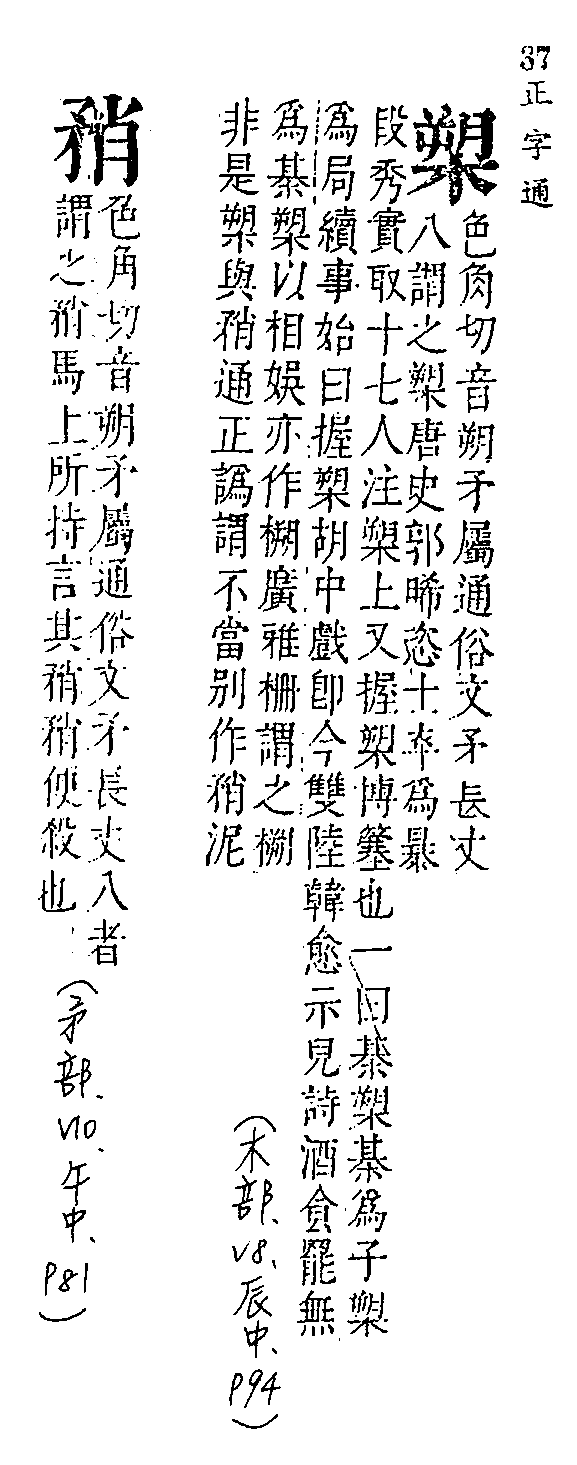 37 正字通
槊
色角切音朔矛屬通俗文矛長丈
八謂之槊唐史郭晞恣士卒為暴
段秀實取十七人注槊上又握槊博簺也一曰棊槊棊為子槊
為局續事始曰握槊胡中戲即今雙陸韓愈示兒詩酒食罷無
為棊槊以相娛亦作㮶廣雅柵謂之㮶
非是槊與矟通正譌謂不當別作矟泥
(木部、V8、辰中、P94)
矟
色角切音朔矛屬通俗文矛長丈八者
謂之矟馬上所持言其矟矟便殺也
(矛部、V10、午中、P81)